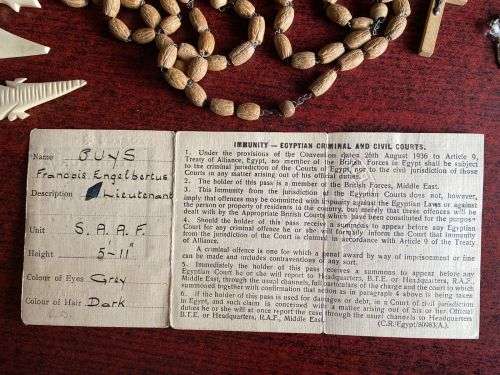 Name BUYS
Francois Engelbertus
Description Lieutenant
Unit S.A.A.F.
Height 5'-11"
Colour of Eyes Grey
Colour of Hair Dark
IMMUNITY — EGYPTIAN CRIMINAL AND CIVIL COURTS.
1. Under the provisions of the Convention dated 26th August 1936 to Article 9,
Treaty of Alliance, Egypt, no member of the British Forces in Egypt shall be subject
to the criminal jurisdiction of the Courts of Egypt, nor to the civil jurisdiction of those
Courts in any matter arising out of his official duties.
2. The holder of this pass is a member of the British Forces, Middle East.
3. This Immunity from the jurisdiction of the Egyptian Courts does not, however,
imply that offences may be committed with impunity against the Egyptian Laws or against
the person or property of residents in the country, but merely that these offences will be
dealt with by the Appropriate British Courts which have been constituted for the purpose.
4. Should the holder of this pass receive a summons to appear before any Egyptian
Court for any criminal offence he or she will formally inform the Court that immunity
from the jurisdiction of the Court is claimed in accordance with Article 9 of the Treaty
of Alliance.
A criminal offence is one for which a penal award by way of imprisonment or fine
can be made and includes contraventions of any sort.
5. Immediately the holder of this pass receives a summons to appear before any
Egyptian Court he or she will report to Headquarters, B.T.E. or Headquarters, R.A.F.,
Middle East, through the usual channels, full particulars of the charge and the court to which
summoned together with confirmation that action as in paragraph 4 above is being taken.
6. If the holder of this pass is used for damages or debt, in a Court of civil jurisdiction
in Egypt, and such claim is concerned with a matter arising out of his or her Official
duties he or she will at once report the case through the usual channels to Headquarters
B.T.E. or Headquarters, R.A.F., Middle East.
(C.R./Egypt/80983(A.)